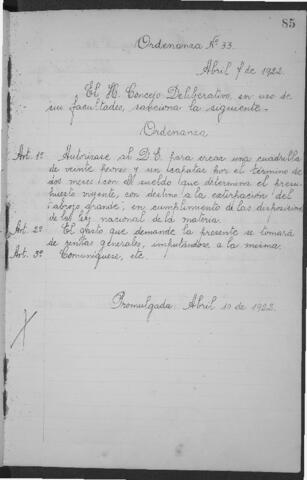 85
Ordenanza Nº 33.
Abril 7 de 1922.
El H. Concejo Deliberativo, en uso de
sus facultades, sanciona la siguiente-
Ordenanza
Art. 1º Autorízase al D.E. para crear una cuadrilla
de veinte peones y un capataz por el término de
dos meses con el sueldo que determina el presu-
puesto vigente, con destino a la extirpación del
"abrojo grande", en cumplimiento de las disposicio
de la ley nacional de la materia.
Art. 2º El gasto que demande la presente se tomará
de rentas generales, imputándose a la misma.
Art. 3º Comuníquese, etc.
Promulgada: Abril 10 de 1922.